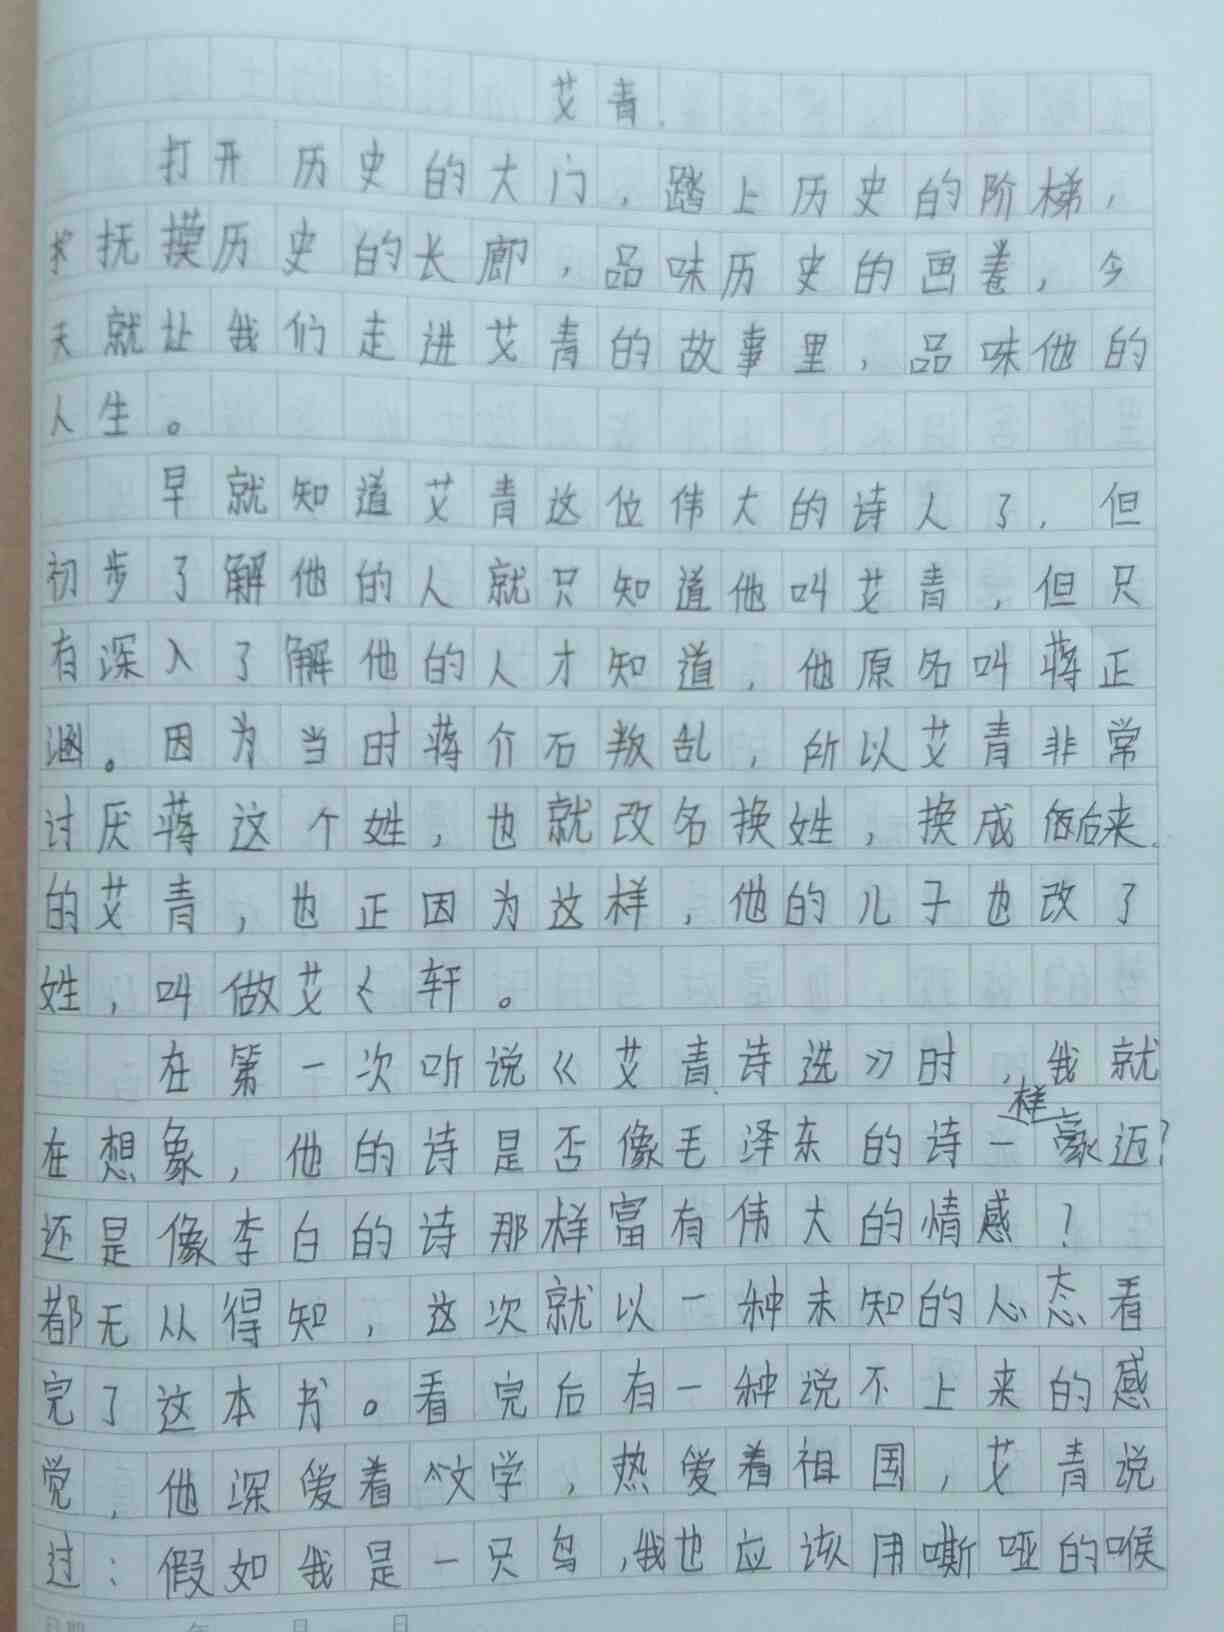 艾青
打开历史的大门，踏上历史的阶梯，
抚摸历史的长廊，品味历史的画卷，今
天就让我们走进艾青的故事里，品味他的
人生。
早就知道艾青这位伟大的诗人了，但
初步了解他的人就只知道他叫艾青，但只
有深入了解他的人才知道，他原名叫蒋正
涵。因为当时蒋介石叛乱，所以艾青非常
讨厌蒋这个姓，也就改名换姓，换成后来
的艾青，也正因为这样，他的儿子也改了
姓，叫做艾轩。
在第一次听说《艾青诗选》时，我就
在想象，他的诗是否像毛泽东的诗一样豪迈？
还是像李白的诗那样富有伟大的情感？
都无从得知，这次就以一种未知的心态看
完了这本书。看完后有一种说不上来的感
觉，他深爱着文学，热爱着祖国，艾青说
过：假如我是一只鸟，我也应该用嘶哑的喉